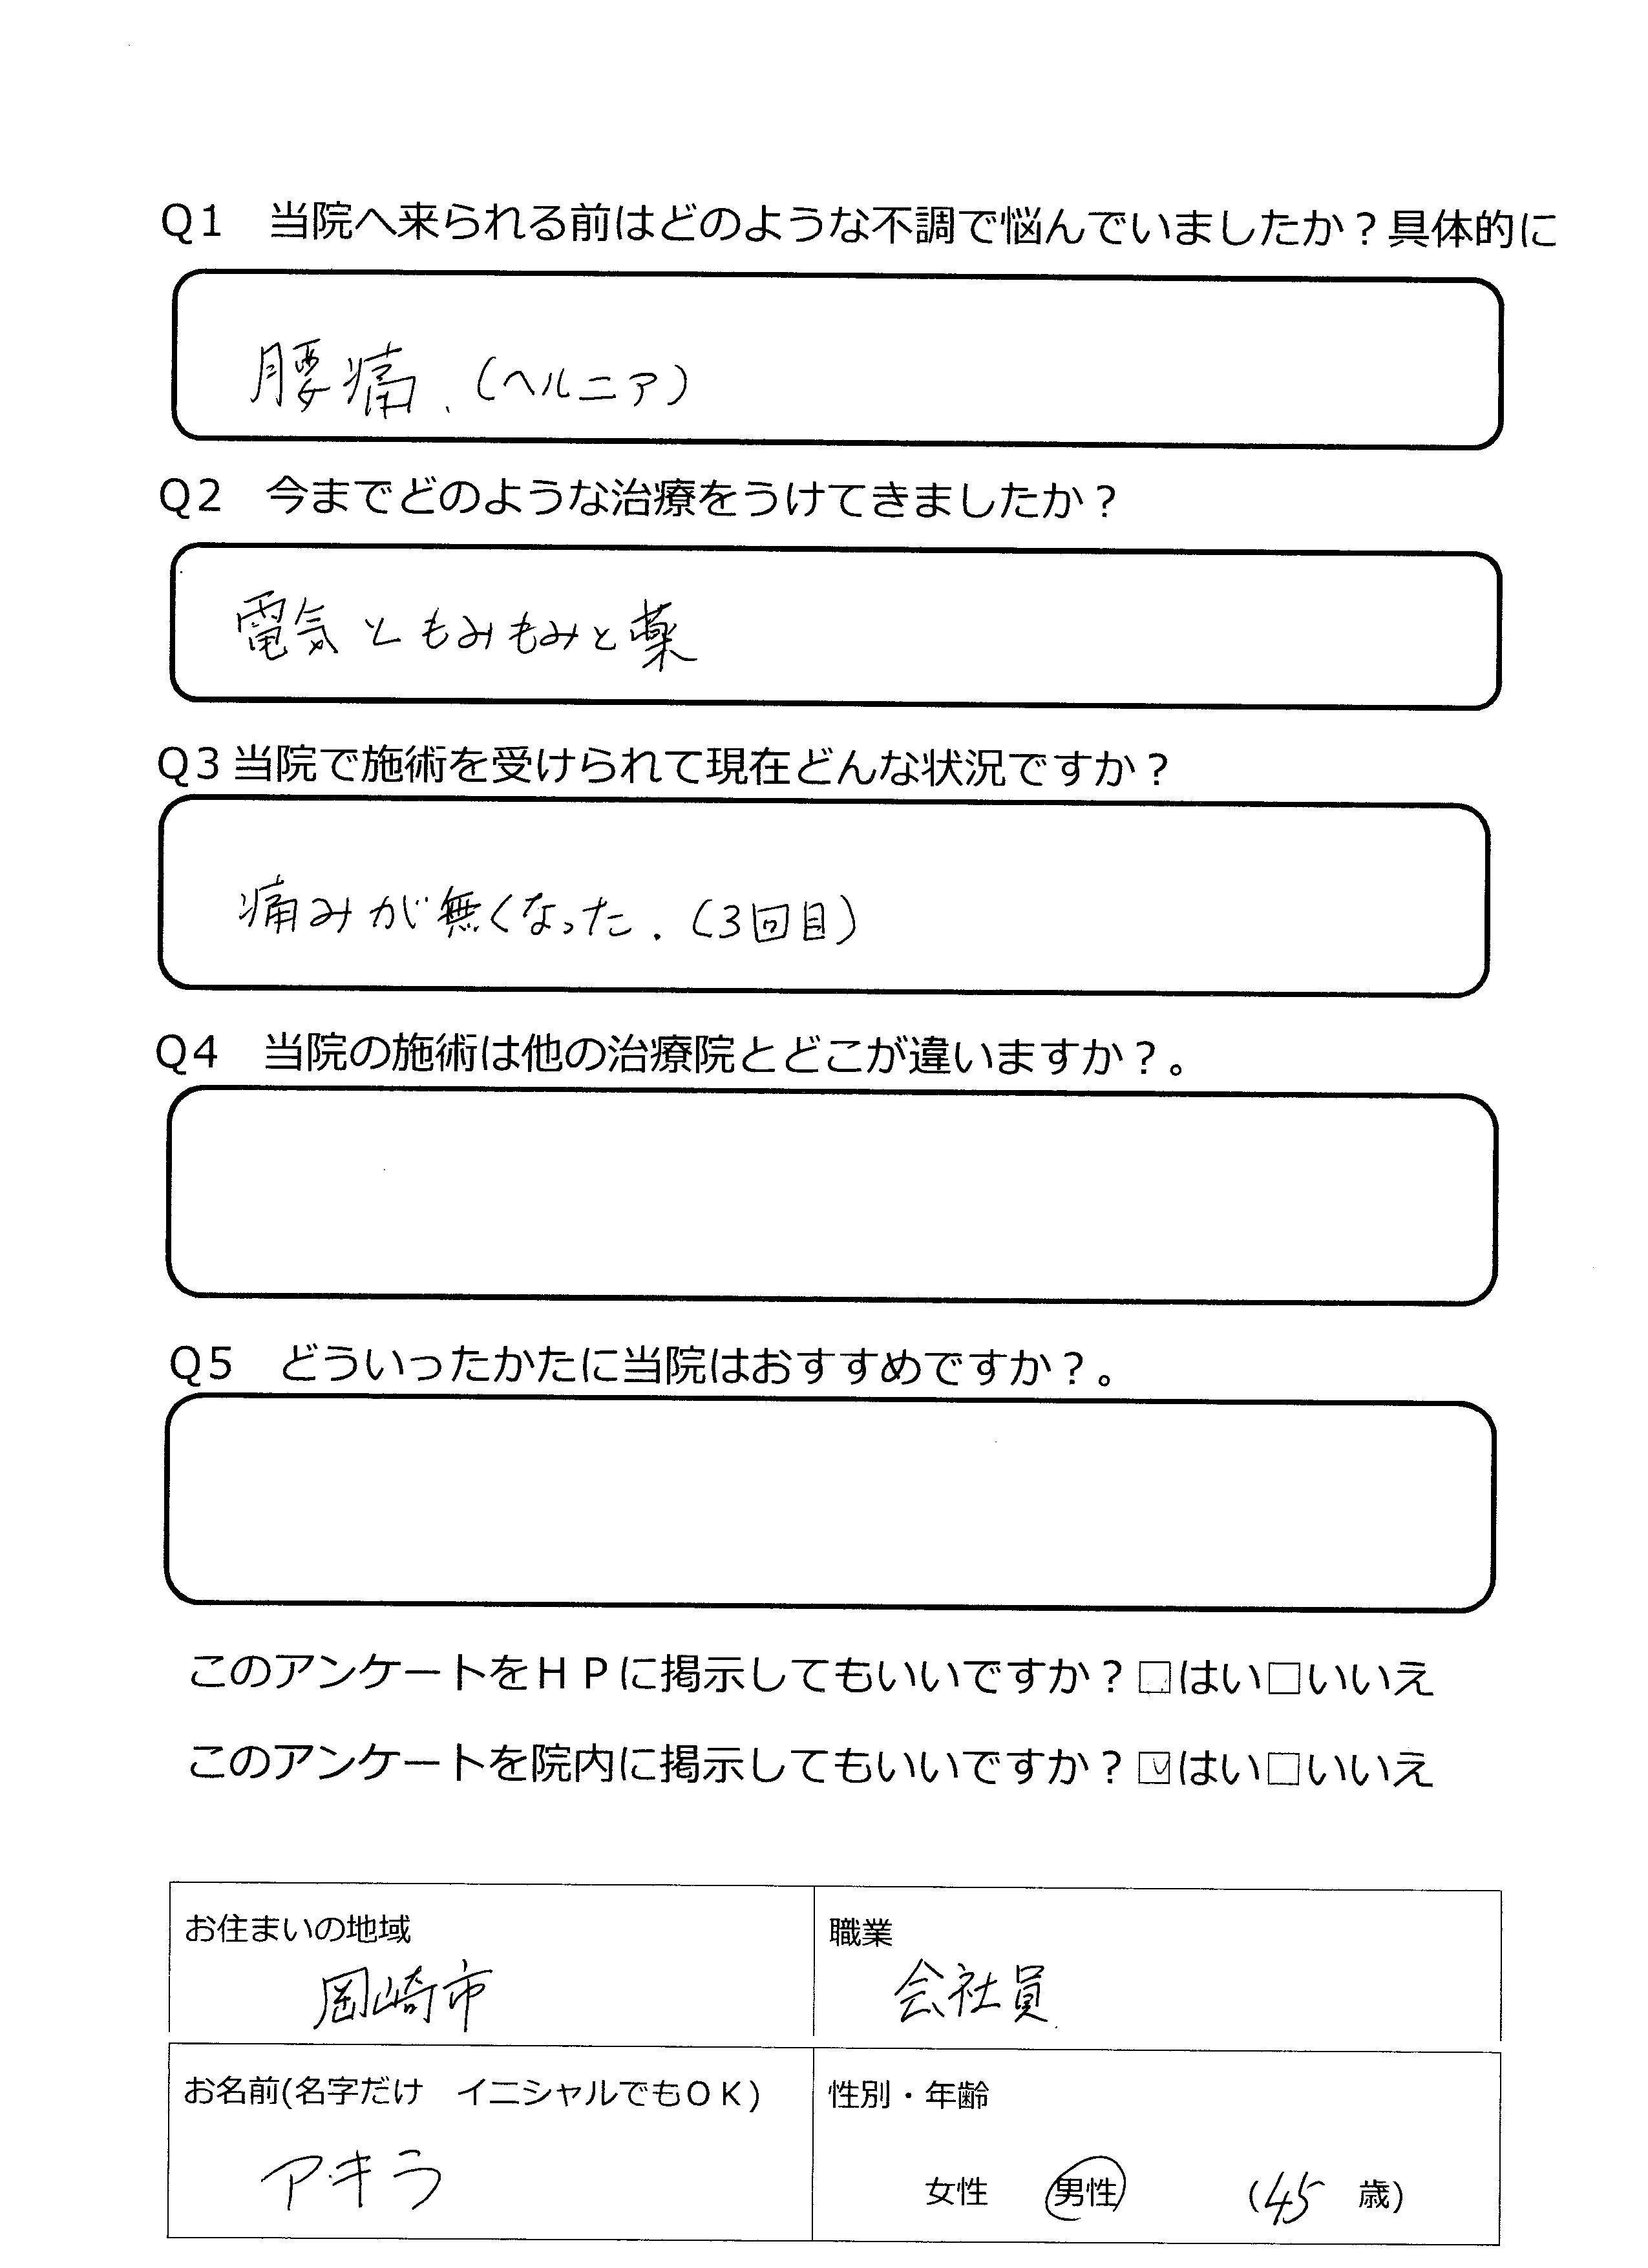 Q1 当院へ来られる前はどのような不調で悩んでいましたか？具体的に
腰痛.（ヘルニア）
Q2 今までどのような治療をうけてきましたか？
電気ともみもみと薬
Q3当院で施術を受けられて現在どんな状況ですか？
痛みが無くなった.（3回目）
Q4 当院の施術は他の治療院とどこが違いますか？。
Q5 どういったかたに当院はおすすめですか？。
このアンケートをＨＰに掲示してもいいですか？□はい□いいえ
このアンケートを院内に掲示してもいいですか？☑はい□いいえ
お住まいの地域 職業
岡崎市 会社員
お名前(名字だけ イニシャルでもＯＫ) 性別・年齢
アキラ 女性 男性 (45 歳)